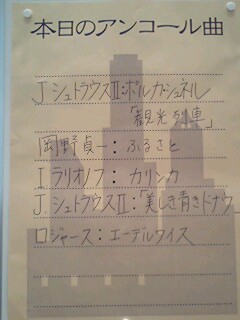 本日のアンコール曲
J.シュトラウスⅡ:ポルカ・シュネル
「観光列車」
岡野貞一:ふるさと
I.ラリオノフ:カリンカ
J.シュトラウスⅡ:「美しき青きドナウ」
ロジャース:エーデルワイス